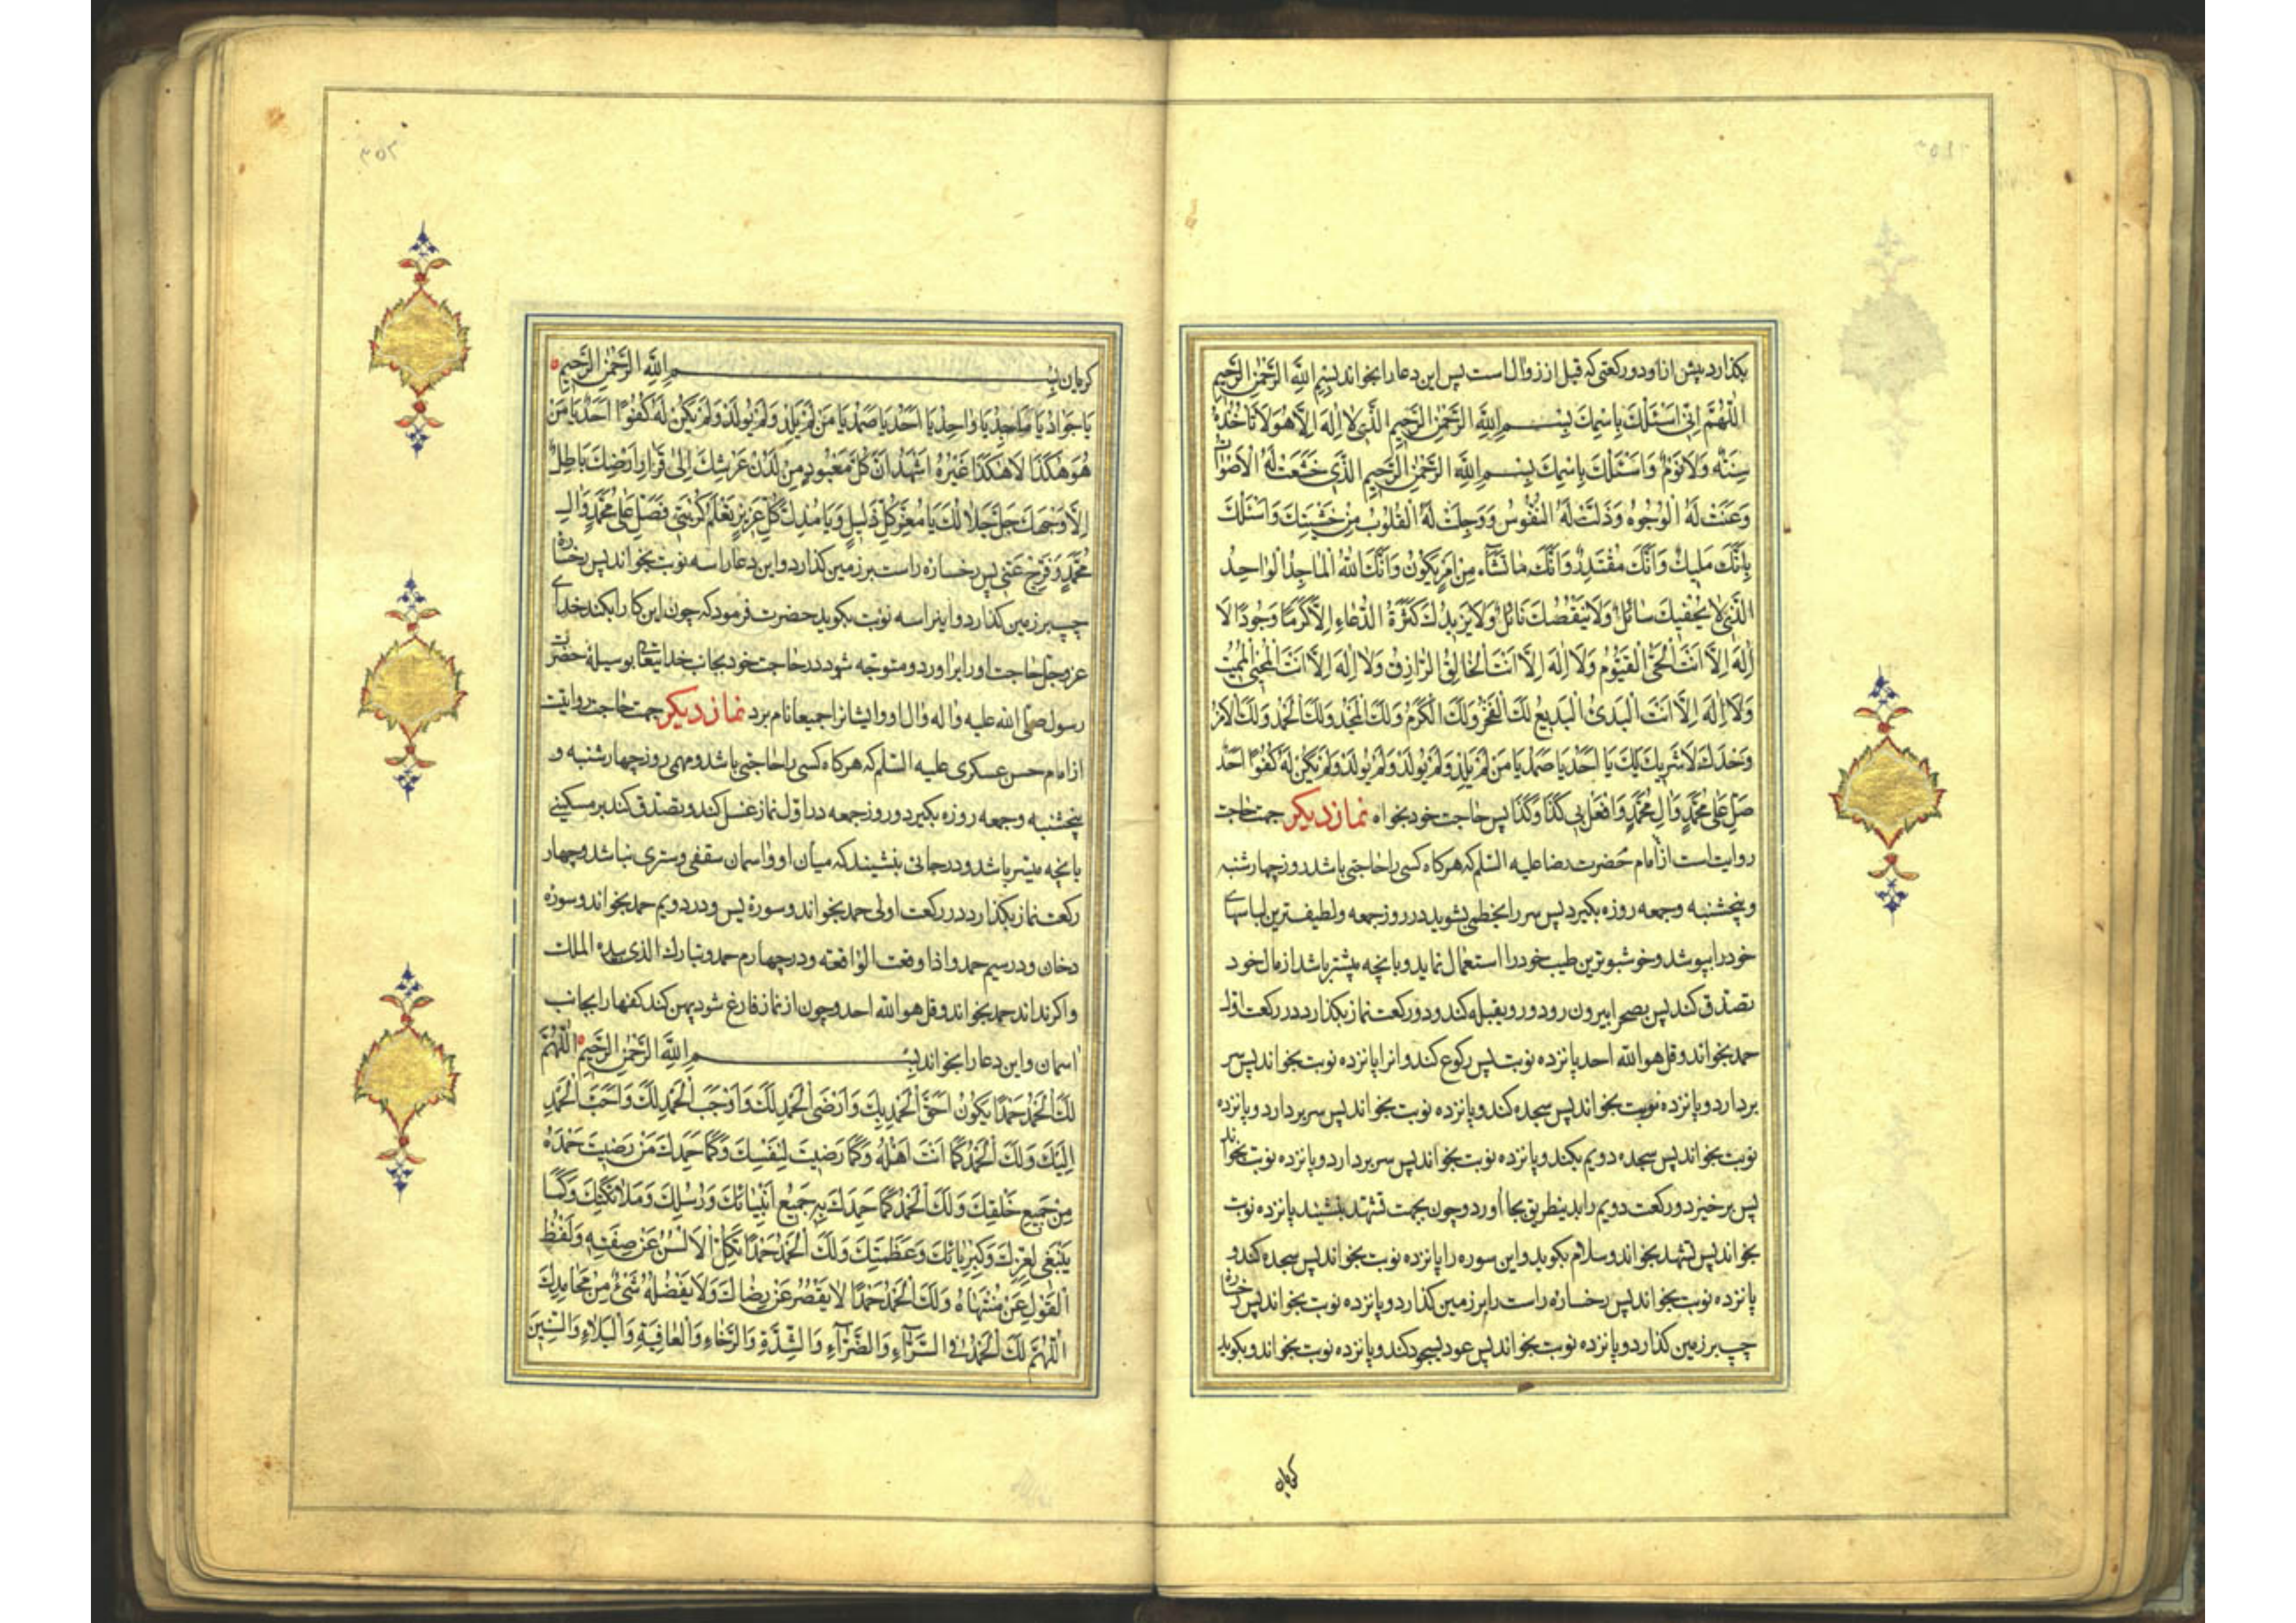 بکذارد پیش از او دو رکعتی که قبل از زوال است پس این دعا را بخواند بِسْمِ اللّٰهِ الرَّحْمٰنِ الرَّحِیمِ
اَللّٰهُمَّ اِنّی اَسْئَلُكَ بِاسْمِكَ بِسْمِ اللّٰهِ الرَّحْمٰنِ الرَّحِیمِ الَّذی لا اِلٰهَ اِلّا هُوَ لا تَاْخُذُهُ
سِنَةٌ وَلا نَوْمٌ وَاَسْئَلُكَ بِاسْمِكَ بِسْمِ اللّٰهِ الرَّحْمٰنِ الرَّحِیمِ الَّذی خَشَعَتْ لَهُ الْاَصْواتُ
وَعَنَتْ لَهُ الْوُجُوهُ وَذَلَّتْ لَهُ النُّفُوسُ وَوَجِلَتْ لَهُ الْقُلُوبُ مِنْ خَشْیَتِكَ وَاَسْئَلُكَ
بِاَنَّكَ مَلیكٌ وَاَنَّكَ مُقْتَدِرٌ وَاَنَّكَ ما تَشآءُ مِنْ اَمْرٍ یَكُونُ وَاَنَّكَ اللّٰهُ الْماجِدُ الْواحِدُ
الَّذی لا یُحْفیكَ سائِلٌ وَلا یَنْقُصُكَ نائِلٌ وَلا یَزیدُكَ كَثْرَةُ الدُّعاءِ اِلّا كَرَمًا وَجُودًا لا
اِلٰهَ اِلّا اَنْتَ الْحَیُّ الْقَیُّومُ وَلا اِلٰهَ اِلّا اَنْتَ الْخالِقُ الرّازِقُ وَلا اِلٰهَ اِلّا اَنْتَ الْمُحْیِی الْمُمیتُ
وَلا اِلٰهَ اِلّا اَنْتَ الْبَدِئُ الْبَدیعُ لَكَ الْفَخْرُ وَلَكَ الْكَرَمُ وَلَكَ الْمَجْدُ وَلَكَ الْحَمْدُ وَلَكَ الْاَمْرُ
وَحْدَكَ لا شَریكَ لَكَ یا اَحَدُ یا صَمَدُ یا مَنْ لَمْ یَلِدْ وَلَمْ یُولَدْ وَلَمْ یَكُنْ لَهُ كُفُوًا اَحَدٌ
صَلِّ عَلیٰ مُحَمَّدٍ وَالِ مُحَمَّدٍ وَافْعَلْ بی كَذا وَكَذا پس حاجت خود بخواه نماز دیکر جهت حاجت
روایت است از امام حضرت رضا علیه السّلم که هرکاه کسی را حاجتی باشد روز چهارشنبه
و پنجشنبه و جمعه روزه بکیرد پس سر را بخطمی بشوید در روز جمعه و لطیف ترین لباسهای
خود را بپوشد و خوشبوترین طیب خود را استعمال نماید و بانچه میسّر باشد از مال خود
تصدّق کند پس بصحرا بیرون رود و رو بقبله کند و دو رکعت نماز بکذارد در رکعت اوّل
حمد بخواند و قل هو اللّه احد پانزده نوبت پس رکوع کند و انرا پانزده نوبت بخواند پس سر
بردارد و پانزده نوبت بخواند پس سجده کند و پانزده نوبت بخواند پس سر بردارد و پانزده
نوبت بخواند پس سجده دویم بکند و پانزده نوبت بخواند پس سر بردارد و پانزده نوبت بخواند
پس برخیزد و رکعت دویم را بدینطریق بجا اورد و چون بجهت تشهّد بنشیند پانزده نوبت
بخواند پس تشهد بخواند و سلام بکوید و این سوره را پانزده نوبت بخواند پس سجده کند و
پانزده نوبت بخواند پس رخساره راست را بر زمین کذارد و پانزده نوبت بخواند پس رخساره
چپ بر زمین کذارد و پانزده نوبت بخواند پس عود بسجود کند و پانزده نوبت بخواند و بکوید
کریان
کریان بِسْمِ اللّٰهِ الرَّحْمٰنِ الرَّحِیمِ
یا جَوادُ یا ماجِدُ یا واحِدُ یا اَحَدُ یا صَمَدُ یا مَنْ لَمْ یَلِدْ وَلَمْ یُولَدْ وَلَمْ یَكُنْ لَهُ كُفُوًا اَحَدٌ یا مَنْ
هُوَ هٰكَذا لا هٰكَذا غَیْرُهُ اَشْهَدُ اَنَّ كُلَّ مَعْبُودٍ مِنْ لَدُنْ عَرْشِكَ اِلیٰ قَرارِ اَرْضِكَ باطِلٌ
اِلّا وَجْهَكَ جَلَّ جَلالُكَ یا مُعِزَّ كُلِّ ذَلیلٍ وَیا مُذِلَّ كُلِّ عَزیزٍ تَعْلَمُ كُرْبَتی فَصَلِّ عَلیٰ مُحَمَّدٍ وَالِ
مُحَمَّدٍ وَفَرِّجْ عَنّی پس رخساره راست بر زمین کذارد و این دعا را سه نوبت بخواند پس رخساره
چپ بر زمین کذارد و اینرا سه نوبت بکوید حضرت فرمود که چون این کار را بکند خدای
عزوجلّ حاجت او را براورد و متوجّه شود در حاجت خود بجانب خدایتعالی بوسیله حضرت
رسول صلّی اللّه علیه واله وال او و ایشانرا جمیعا نام برد نماز دیکر جهت حاجت روایت
از امام حسن عسکری علیه السّلم که هرکاه کسی را حاجتی باشد و مهمی روز چهارشنبه و
پنجشنبه و جمعه روزه بکیرد و روز جمعه در اوّل نماز غسل کند و تصدّق کند بر مسکینی
بانچه میسّر باشد و در جائی بنشیند که میان او و اسمان سقفی و ستری نباشد و چهار
رکعت نماز بکذارد در رکعت اولی حمد بخواند و سورة یس و در دویم حمد بخواند و سوره
دخان و در سیم حمد و اذا وقعت الواقعه و در چهارم حمد و تبارك الذی بیده الملك
و اکر نداند حمد بخواند و قل هو اللّه احد و چون از نماز فارغ شود پهن کند کفها را بجانب
اسمان و این دعا را بخواند بِسْمِ اللّٰهِ الرَّحْمٰنِ الرَّحِیمِ اَللّٰهُمَّ
لَكَ الْحَمْدُ حَمْدًا یَكُونُ اَحَقَّ الْحَمْدِ بِكَ وَاَرْضَی الْحَمْدِ لَكَ وَاَوْجَبَ الْحَمْدِ لَكَ وَاَحَبَّ الْحَمْدِ
اِلَیْكَ وَلَكَ الْحَمْدُ كَما اَنْتَ اَهْلُهُ وَكَما رَضیتَ لِنَفْسِكَ وَكَما حَمِدَكَ مَنْ رَضیتَ حَمْدَهُ
مِنْ جَمیعِ خَلْقِكَ وَلَكَ الْحَمْدُ كَما حَمِدَكَ بِهِ جَمیعُ اَنْبِیائِكَ وَرُسُلِكَ وَمَلائِكَتِكَ وَكَما
یَنْبَغی لِعِزِّكَ وَكِبْرِیائِكَ وَعَظَمَتِكَ وَلَكَ الْحَمْدُ حَمْدًا تَكِلُّ الْاَلْسُنُ عَنْ صِفَتِهِ وَلَفْظُ
الْقَوْلِ عَنْ مُنْتَهاهُ وَلَكَ الْحَمْدُ حَمْدًا لا یَقْصُرُ عَنْ رِضاكَ وَلا یَفْضُلُهُ شَیْءٌ مِنْ مَحامِدِكَ
اَللّٰهُمَّ لَكَ الْحَمْدُ فِی السَّرّآءِ وَالضَّرّآءِ وَالشِّدَّةِ وَالرَّخاءِ وَالْعافِیَةِ وَالْبَلاءِ وَالسِّنینَ